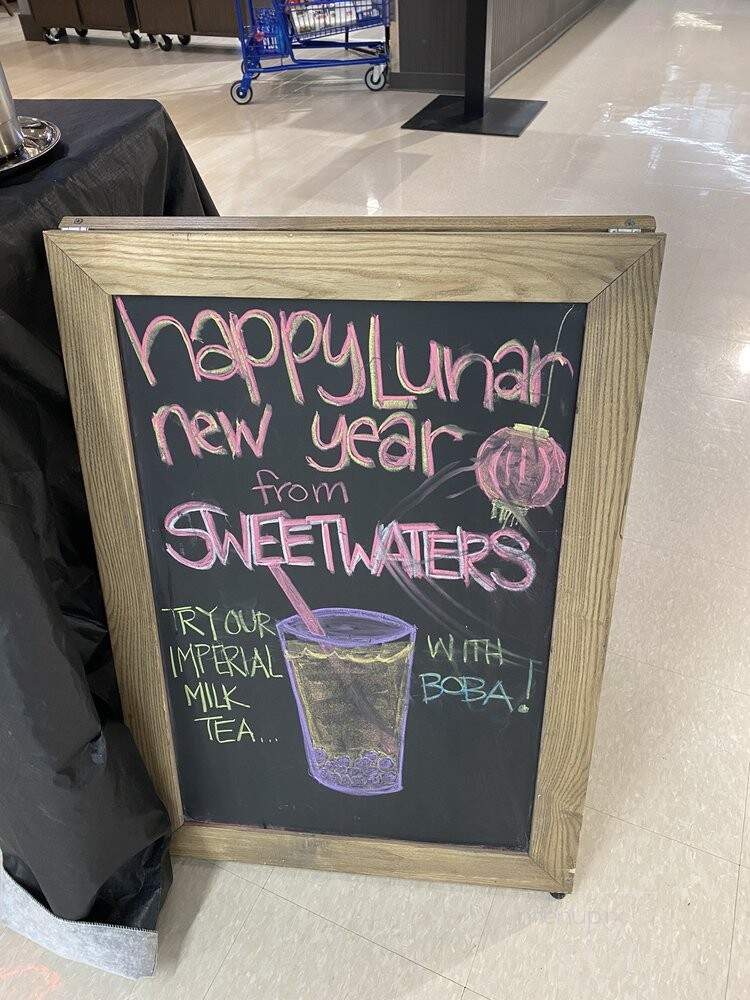 happy Lunar
new year
from
SWEETWATERS
TRY OUR
IMPERIAL
MILK
TEA...
WITH
BOBA!
menupix